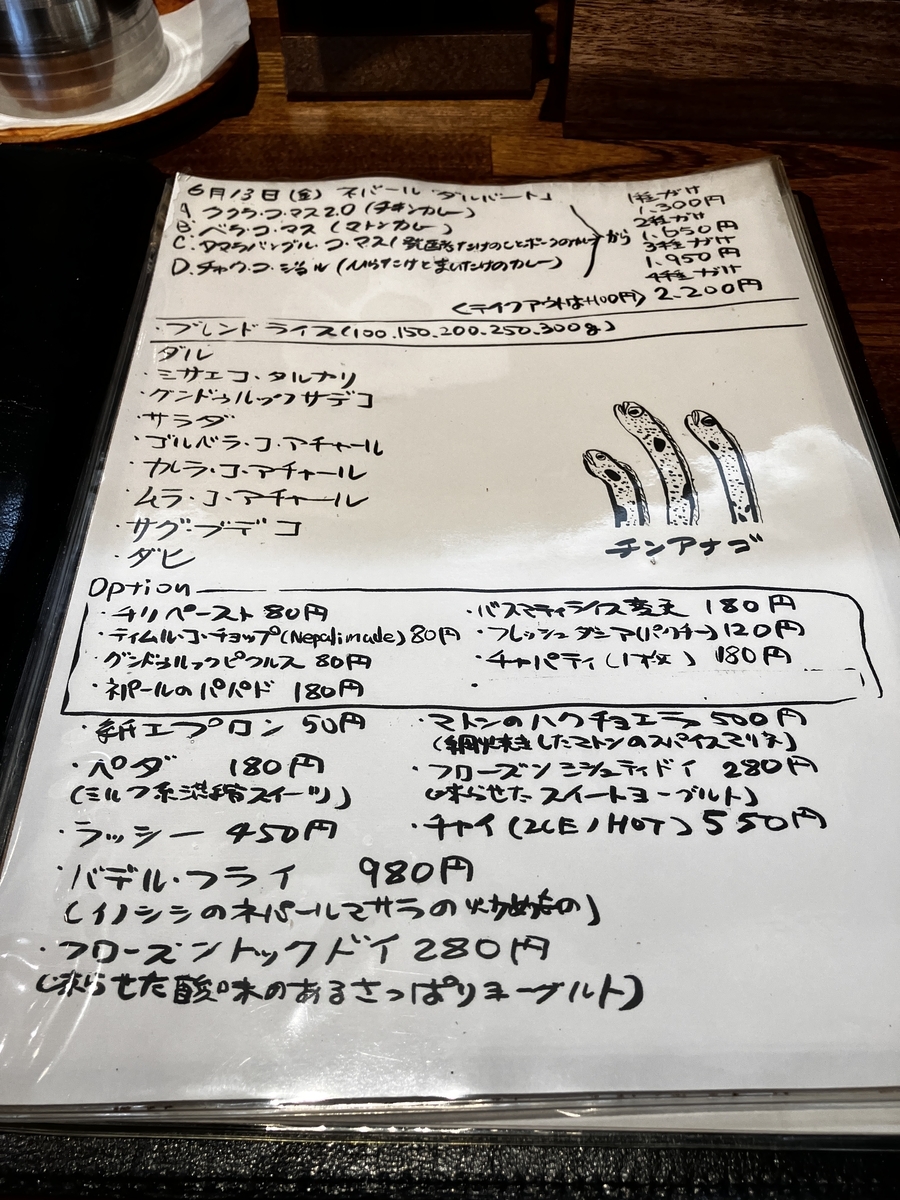 6月13日(金) ネパール「ダルバート」
A ククラ・コ・マス2.0 (チキンカレー)
B. ベラ・コ・マス (マトンカレー)
C. タマラバングル・コ・マス( たけのことポークのカレー
D. チャウ・コ・ジョル (ひらたけとまいたけのカレー)
から
1種がけ
1.300円
2種がけ
1.650円
3種がけ
1.950円
4種がけ
2.200円
(テイクアウトは+100円)
・ブレンドライス(100.150.200.250.300g)
ダル
・ミサエコ・タルカリ
・グンドゥルックサデコ
・サラダ
・ゴルベラ・コ・アチャール
・カレラ・コ・アチャール
・ムラ・コ・アチャール
・サグ・ブデコ
・ダヒ
チンアナゴ
Option
・チリペースト 80円
・ティムル・コ・チョップ(Nepali made) 80円
・グンドゥルックピクルス 80円
・ネパールのパパド 180円
・バスマティライス変更 180円
・フレッシュダニア(パクチー) 120円
・チャパティ(1枚) 180円
・
・紙エプロン 50円
・ペダ 180円
(ミルク系濃縮スイーツ)
・ラッシー 450円
・マトンのハクチョエラ 500円
(網焼きしたマトンのスパイスマリネ)
・フローズンミシュティドイ 280円
(凍らせた スイートヨーグルト)
・チャイ (ICE/HOT) 550円
・バデル・フライ 980円
(イノシシのネパールマサラの炒めもの)
・フローズントックドイ 280円
(凍らせた酸味のあるさっぱりヨーグルト)